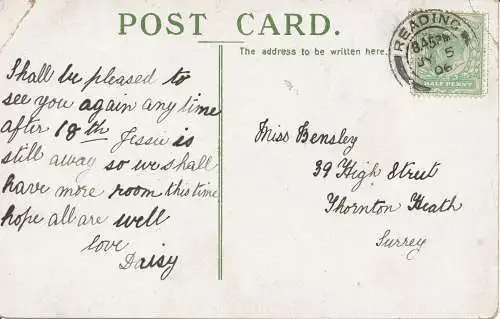 POST CARD.
The address to be written here.
Shall be pleased to
see you again any time
after 18th Jessie is
still away so we shall
have more room this time
hope all are well
love
Daisy
READING
845PM
JY 5
06
HALF PENNY
Miss Bensley
39 High Street
Thornton Heath
Surrey